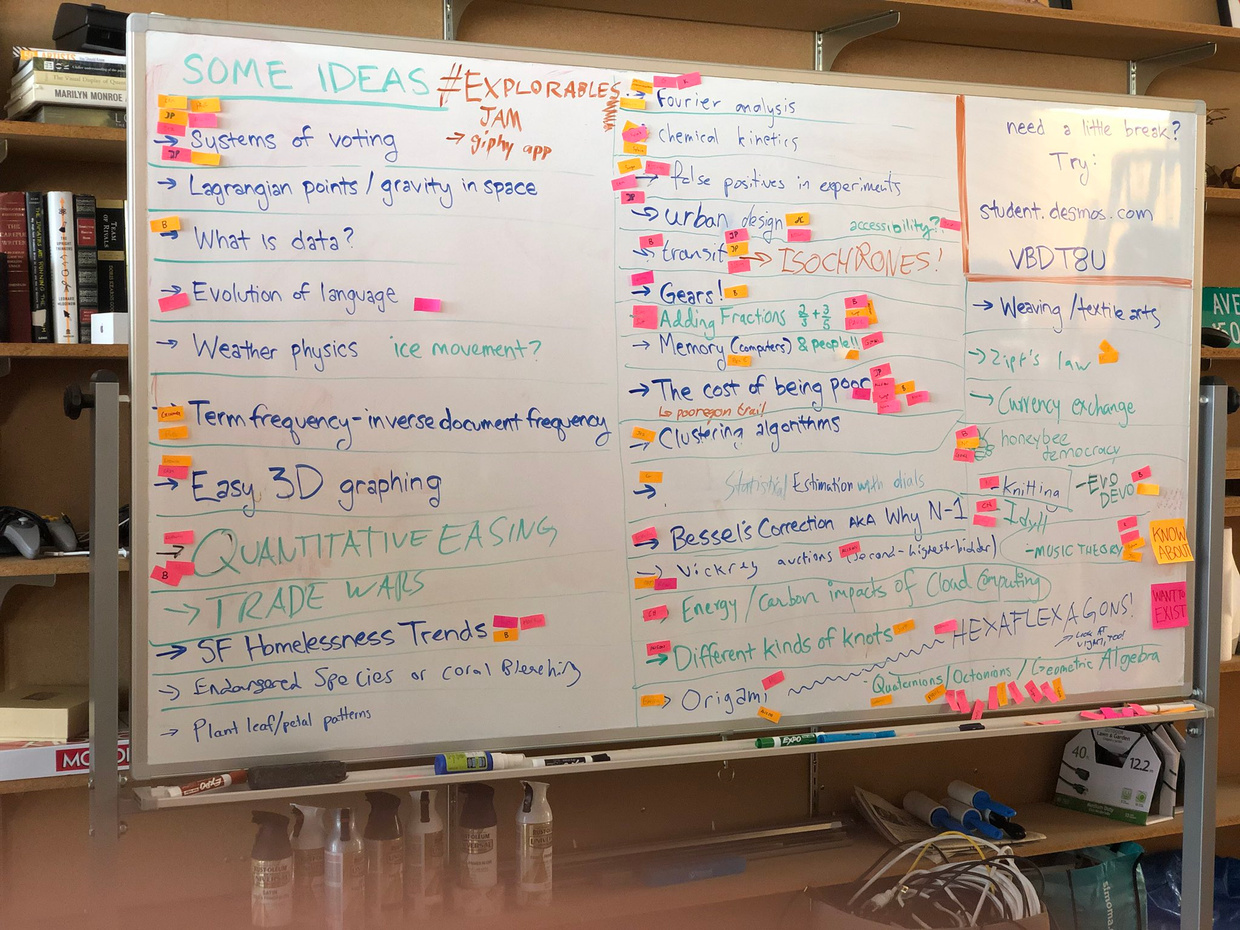 SOME IDEAS
#EXPLORABLES
JAM
→ giphy app
→ Systems of voting
→ Lagrangian points / gravity in space
→ What is data?
→ Evolution of language
→ Weather physics ice movement?
→ Term frequency-inverse document frequency
→ Easy 3D graphing
→ QUANTITATIVE EASING
→ TRADE WARS
→ SF Homelessness Trends
→ Endangered Species or coral Bleaching
→ Plant leaf/petal patterns
→ Fourier analysis
→ chemical kinetics
→ false positives in experiments
→ urban design accessibility?
→ transit → ISOCHRONES!
→ Gears!
Adding Fractions 2/3 + 3/5
→ Memory (computers) & people!!
→ The cost of being poor
↳ pooregon trail
→ Clustering algorithms
→ Statistical Estimation with dials
→ Bessel's Correction AKA Why N-1
→ Vickrey auctions (second-highest-bidder)
→ Energy/Carbon impacts of Cloud Computing
→ Different kinds of knots
→ Origami
HEXAFLEXAGONS!
Quaternions/Octonions/Geometric Algebra
need a little break?
Try:
student.desmos.com
VBDT8U
→ Weaving/textile arts
→ Zipf's law
→ Currency exchange
honeybee
democracy
-Knitting
-EVO
DEVO
-Idyll
-MUSIC THEORY
KNOW
ABOUT
WANT TO
EXIST
MARILYN MONROE
TEAM
OF
RIVALS
EXPO
40
12.2
Lawn & Garden
simoma